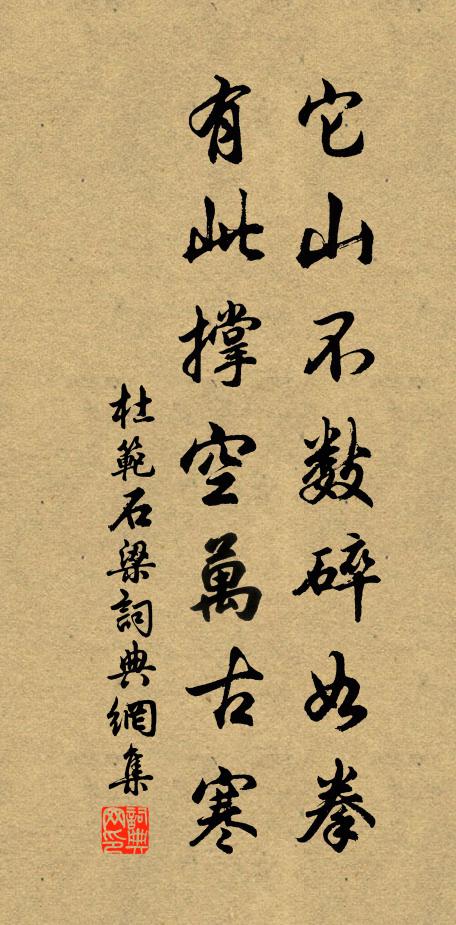 它山不数碎如拳
有此撑空萬古寒
杜範石梁詞典網集
詞典網印